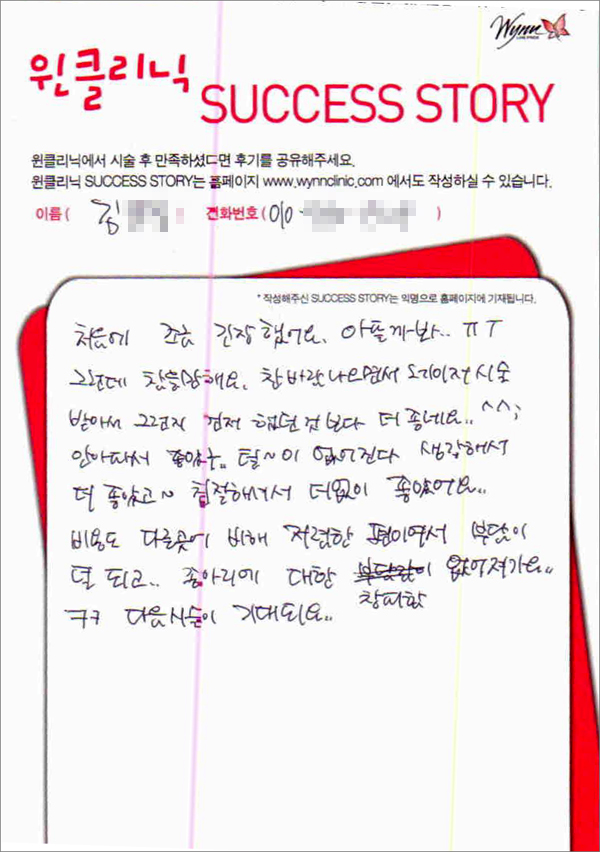 Wynn
윈클리닉
SUCCESS STORY
윈클리닉에서 시술 후 만족하셨다면 후기를 공유해주세요.
윈클리닉 SUCCESS STORY는 홈페이지 www.wynnclinic.com 에서도 작성하실 수 있습니다.
이름 ( 김 전화번호 ( 010 )
* 작성해주신 SUCCESS STORY는 익명으로 홈페이지에 기재됩니다.
처음에 조금 긴장 했어요. 아플까봐.. ㅠㅜ
그런데 해요.
받아서 그런지 먼저 했던 것보다 더 좋네요.. ^^;
안아파서 좋았구.. 털~이 없어진다 생각해서
더 좋았고~ 친절해서 더없이 좋았어요..
비용도 다른곳에 비해 저렴한 편이여서 부담이
덜 되고.. 종아리에 대한 없어져가요..
창피함
ㅋㅋ 다음시술이 기대되요..